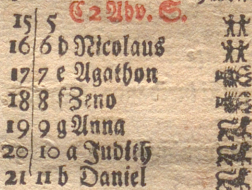 C 2 Adv. S.
15 5
16 6 d Nicolaus
17 7 e Agathon
18 8 f Zeno
19 9 g Anna
20 10 a Judith
21 11 b Daniel